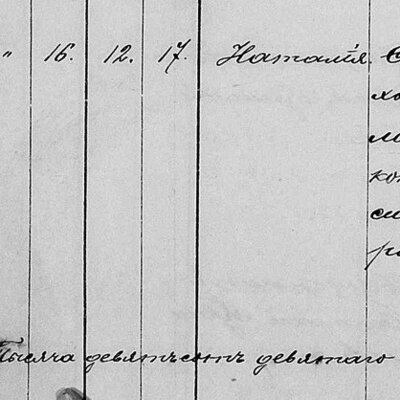 " 16. 12. 17. Наталія.
Тысяча девятьсотъ девятаго